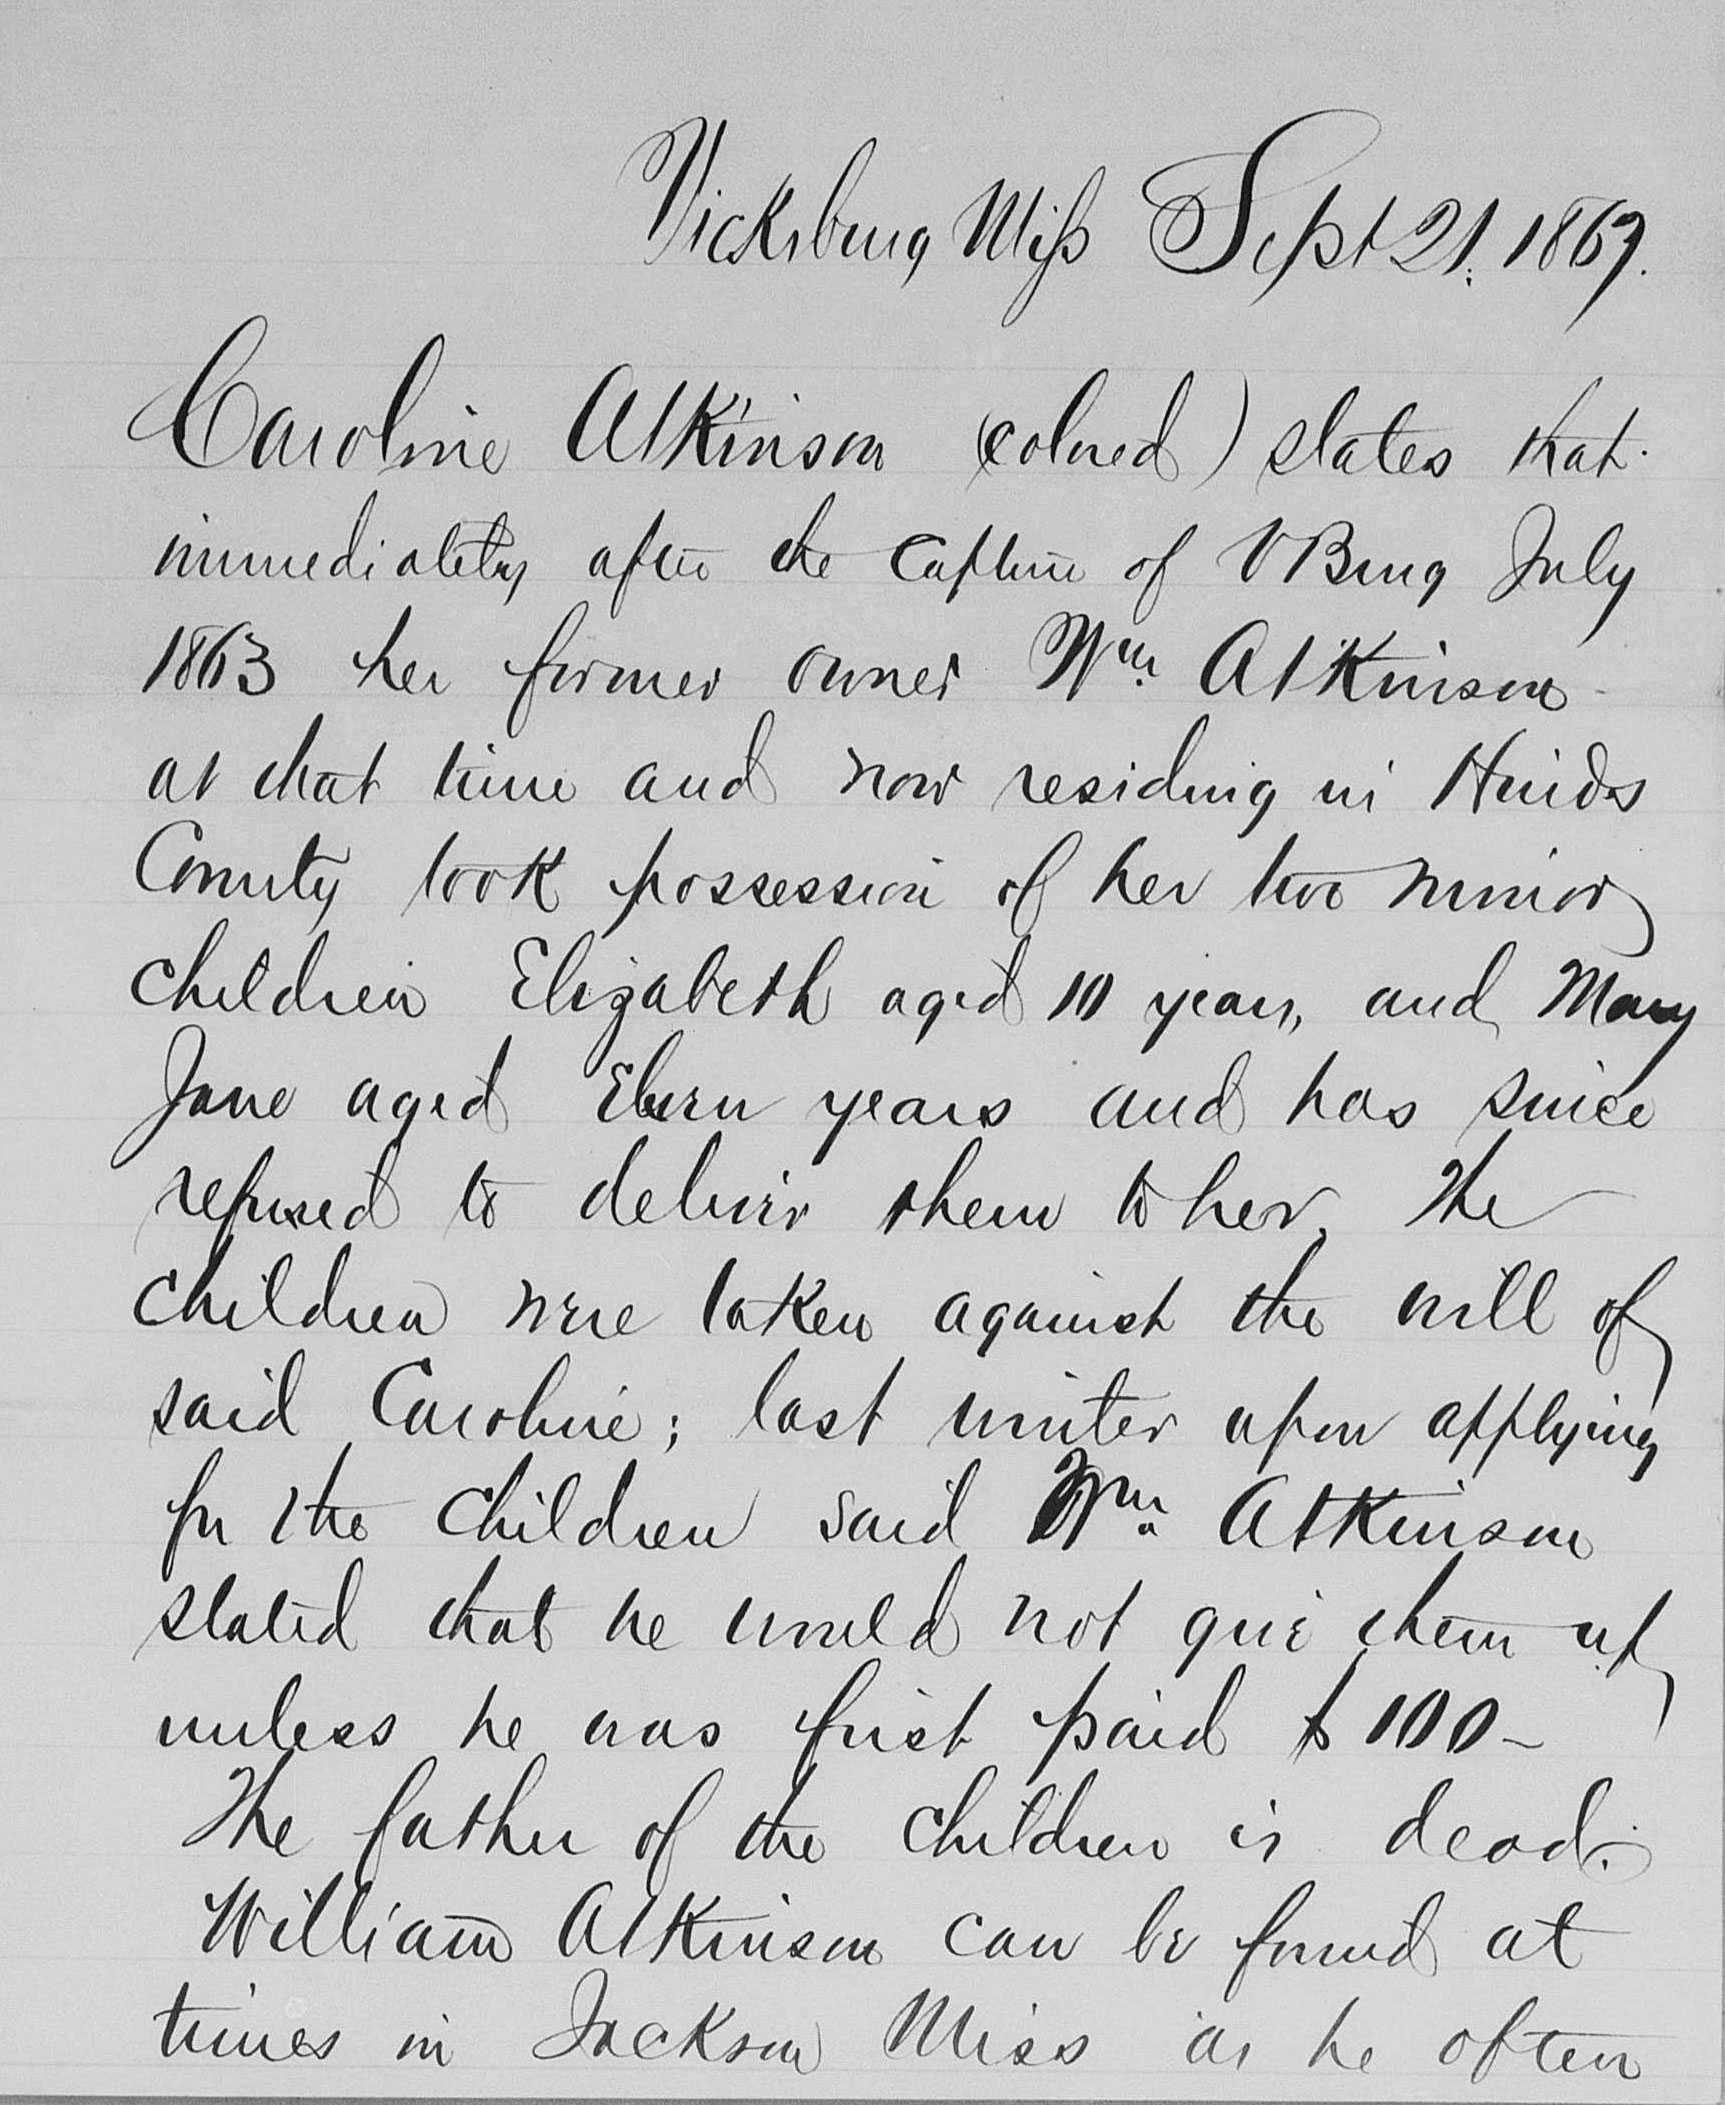 Vicksburg Miss Sept 21. 1867.
Caroline Atkinson (colored) states that
immediately after the capture of VBurg July
1863 her former owner Wm Atkinson
at that time and now residing in Hinds
County took possession of her two minor
children Elizabeth aged 10 years, and Mary
Jane aged Eleven years and has since
refused to deliver them to her. The
children were taken against the will of
said Caroline; last winter upon applying
for the children said Wm Atkinson
stated that he would not give them up
unless he was first paid $100–
The father of the children is dead.
William Atkinson can be found at
times in Jackson Miss as he often